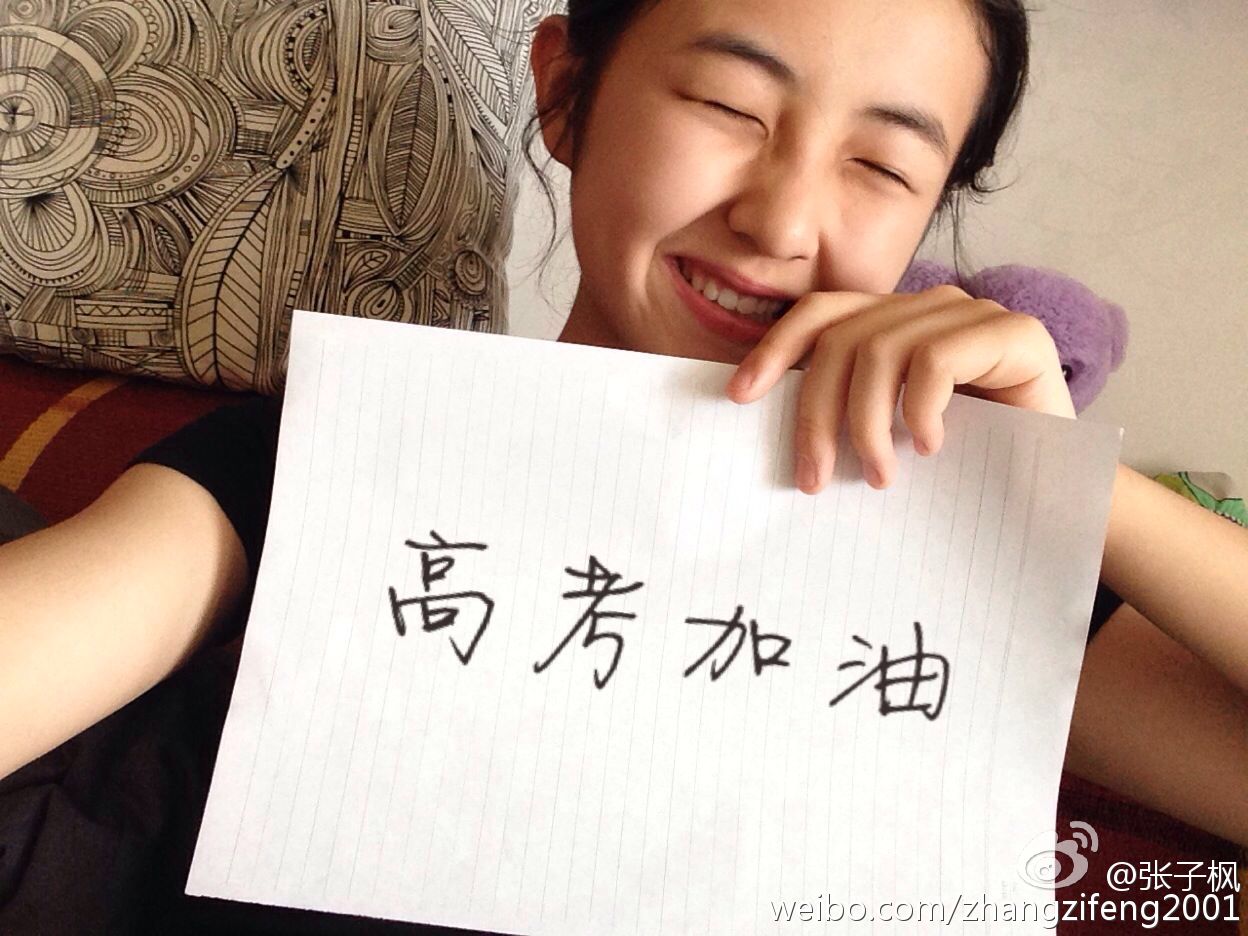 高考加油
@张子枫
weibo.com/zhangzifeng2001